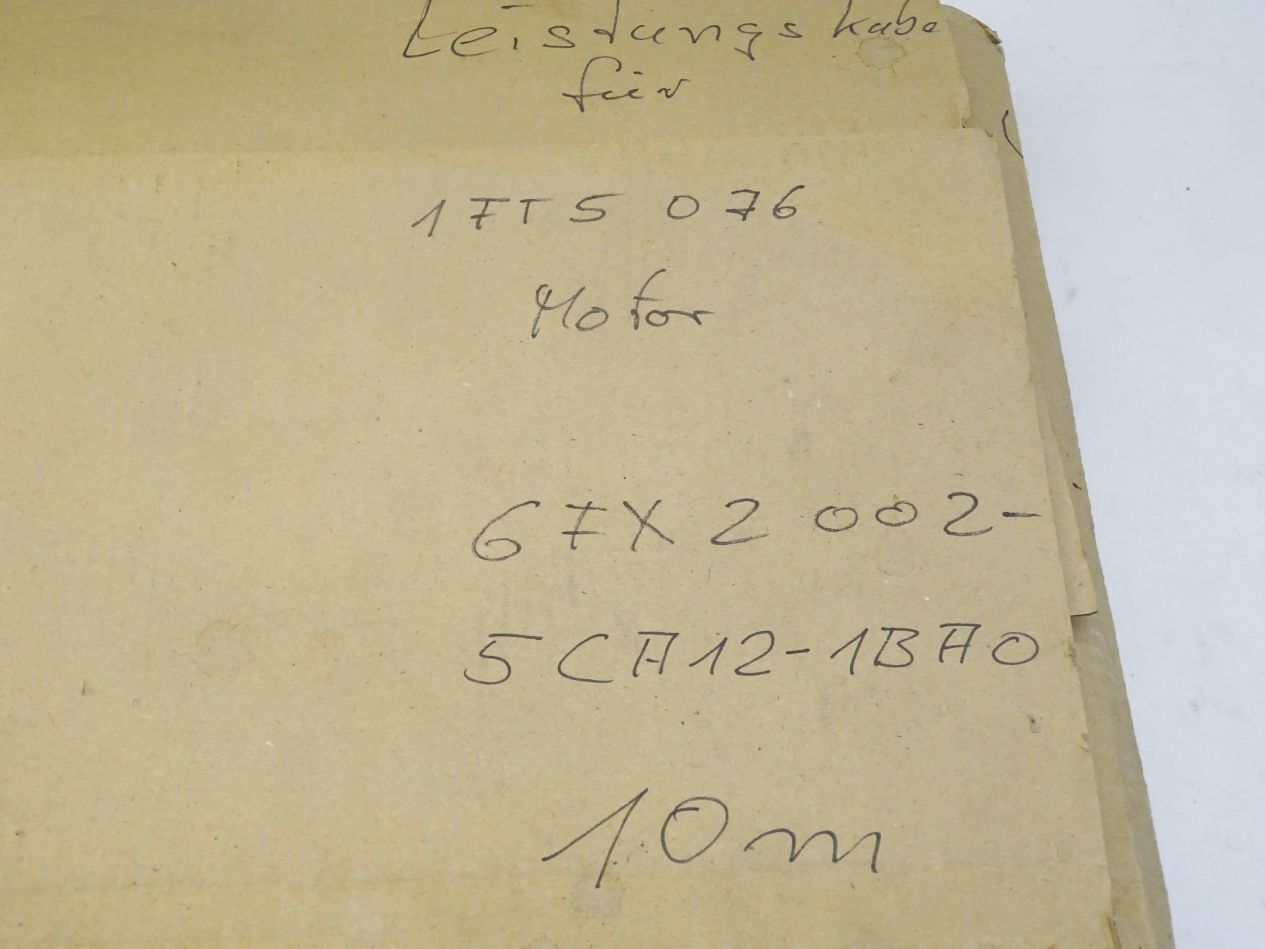 Leistungskabe
für
1FT5 076
Motor
6FX2 002-
5CA12-1BA0
10m